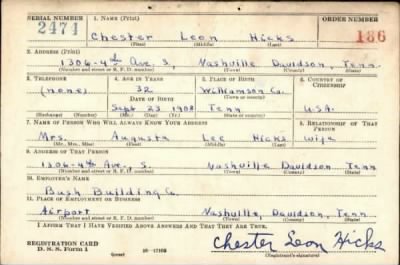 SERIAL NUMBER 1. NAME (Print) ORDER NUMBER
2474 Chester Leon Hicks 186
(First) (Middle) (Last)
2. ADDRESS (Print)
1306-4th Ave. S, Nashville Davidson, Tenn.
(Number and street or R. F. D. number) (Town) (County) (State)
3. TELEPHONE 4. AGE IN YEARS 5. PLACE OF BIRTH 6. COUNTRY OF CITIZENSHIP
(none) 32 Williamson Co.
DATE OF BIRTH
Sept 23 1908 Tenn U.S.A.
(Exchange) (Number) (Mo.) (Day) (Yr.) (State or country)
7. NAME OF PERSON WHO WILL ALWAYS KNOW YOUR ADDRESS 8. RELATIONSHIP OF THAT PERSON
Mrs. Augusta Lee Hicks wife
(Mr., Mrs., Miss) (First) (Middle) (Last)
9. ADDRESS OF THAT PERSON
1306-4th Ave., S. Nashville Davidson Tenn
(Number and street or R. F. D. number) (Town) (County) (State)
10. EMPLOYER'S NAME
Bush Building Co.
11. PLACE OF EMPLOYMENT OR BUSINESS
Airport Nashville, Davidson, Tenn
(Number and street or R. F. D. number) (Town) (County) (State)
I AFFIRM THAT I HAVE VERIFIED ABOVE ANSWERS AND THAT THEY ARE TRUE.
REGISTRATION CARD
D. S. S. Form 1 (over) 16-17105 Chester Leon Hicks
(Registrant's signature)